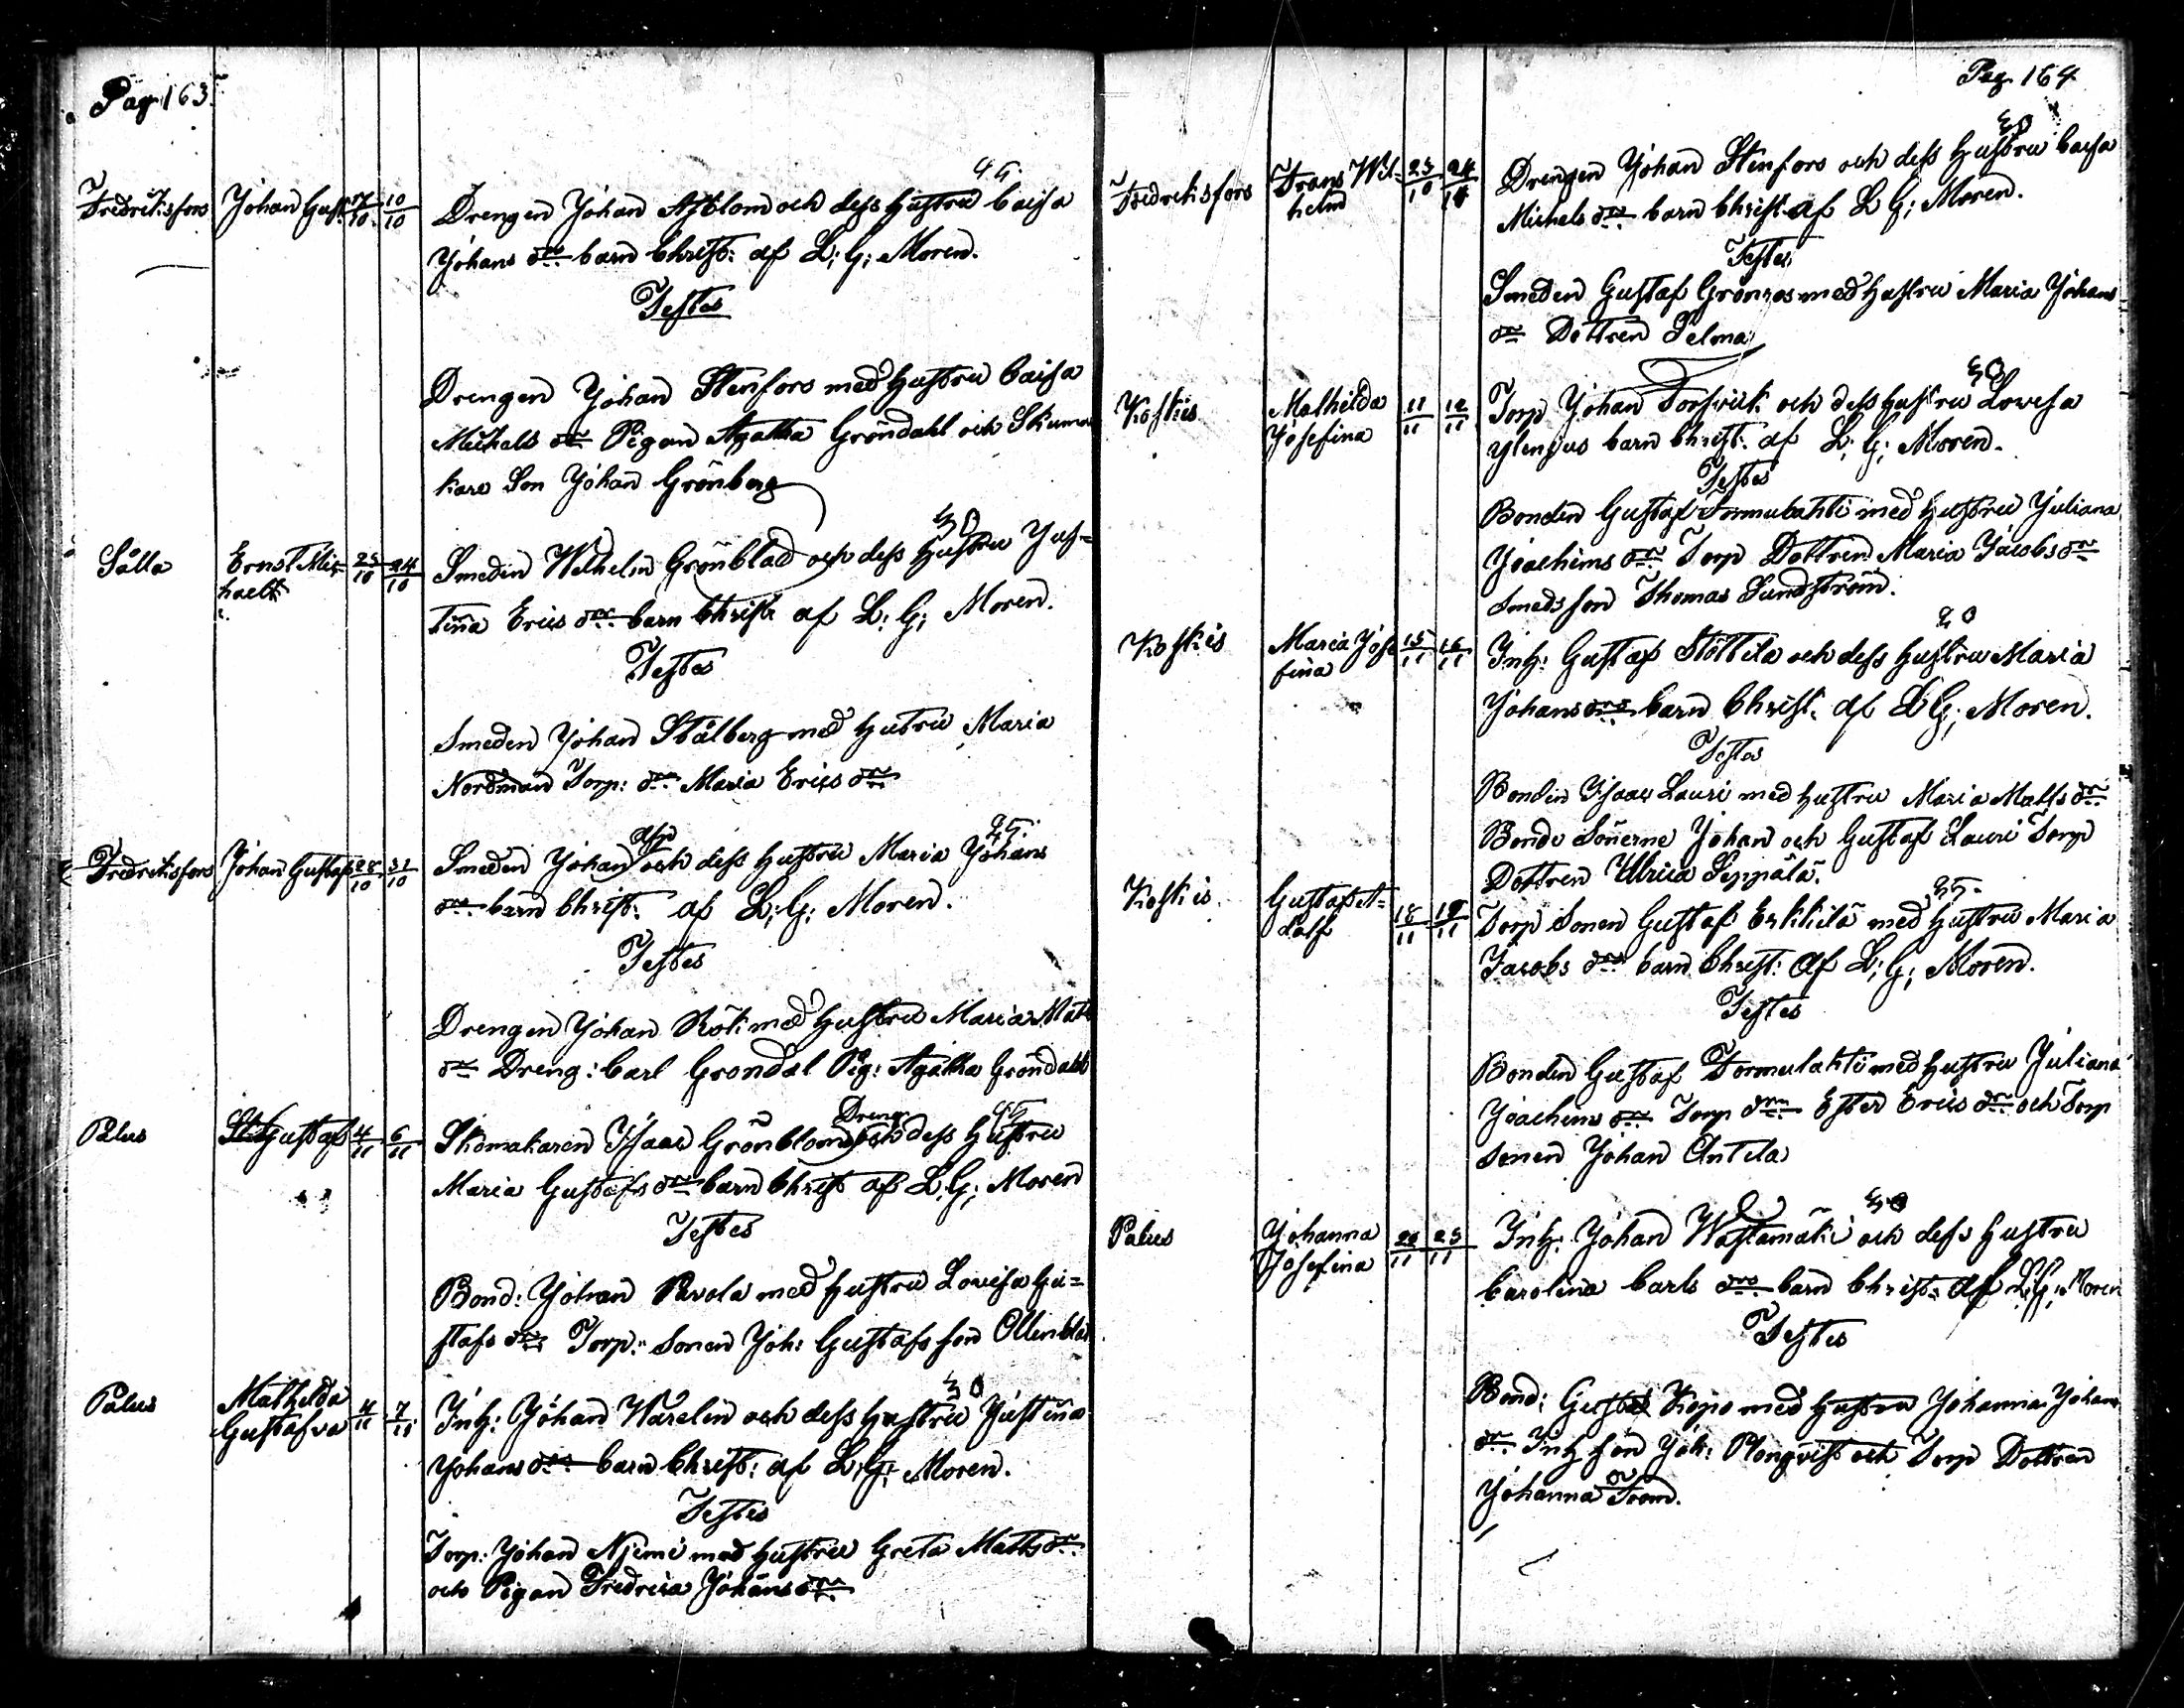 Pag 163.
Fredriksfors Johan Gust: 10/10
Drengen Johan Asblom och dess Hustru Caisa
Johans dr barn Christ: af L: G: Moren.
Testes
Drengen Johan Stenfors med Hustru Caisa
Michels dr Pigan Agatha Gröndahl och Skuma
kare Son Johan Grönberg
Sälla Ernst Mic= 23/10 24/10 Smeden Wilhelm Grönblad och dess Hustru Jus=
haell
tina Erics dr barn Christ: af L: G: Moren.
Testes
Smeden Johan Stålberg med Hutru Maria
Nordman Torp: dr Maria Erics dr
Fredriksfors Johan Gustaf 28/10 31/10 Smeden Johan och dess Hustru Maria Johans
dr barn Christ: af L: G: Moren.
Testes
Drengen Johan Rök med Hustru Maria Mats
dr Dreng: Carl Grondal Pig: Agatha Gröndahl
Palus Gustaf 4/11 6/11 Skomakaren Isaac Grönblom och dess Hustru
Maria Gustafs dr barn Christ af L: G: Moren
Testes
Bond: Johan Pavola med Hustru Lovisa Gu=
stafs dr Torp: Sonen Joh: Gustafsson Ollenblad
Palus Mathilda
Gustafva 4/11 7/11 Inh: Johan Warelin och dess Hustru Justina
Johans dr barn Christ: af L: G: Moren.
Testes
Torp: Johan Njemi med Hustru Greta Matts dr
och Pigan Fredrica Johans dr
Pag. 164
Fredriksfors Frans Wil= 23/10 24/10 Drengen Johan Stenfors och dess Hustru Caisa
helm
Michels dr barn Christ af L G: Moren.
Testes
Smeden Gustaf Grönros med Hustru Maria Johans
dr Dottren Selma
Koskis Mathilda 11/11 12/11 Torp Johan Torsvik och dess Hustru Lovisa
Josefina
Ylenjus barn Christ: af L: G: Moren.
Testes
Bonden Gustaf Tormulahti med Hustru Juliana
Joachims dr Torp Dottren Maria Jacobs dr
Smedsson Thomas Sundström.
Koskis Maria Jose 15/11 16/11 Inh: Gustaf Stöttila och dess Hustru Maria
fina
Johans dr barn Christ. af L G: Moren.
Testes
Bonden Isaac Lauri med Hustru Maria Matts dr
Bonde Sönerne Johan och Gustaf Lauri Torp
Dottren Ulrica Seppälä.
Koskis Gustaf A= 18/11 19/11 Torp Sonen Gustaf Erkkilä med Hustru Maria
dolf
Jacobs dr barn Christ: af L: G: Moren.
Testes
Bonden Gustaf Tormulahti med Hustru Juliana
Joachims dr Torp dr Ester Erics dr och Torp
Sonen Johan Antila
Palus Johanna 23/11 Inh: Johan Wästamäki och dess Hustru
Josefina
Carolina Carls dr barn Christ: af L: G: Moren
Testes
Bond: Gustaf Kojo med Hustru Johanna Johans
dr Inh son Joh: Plonqvist och Torp Dottren
Johanna From.